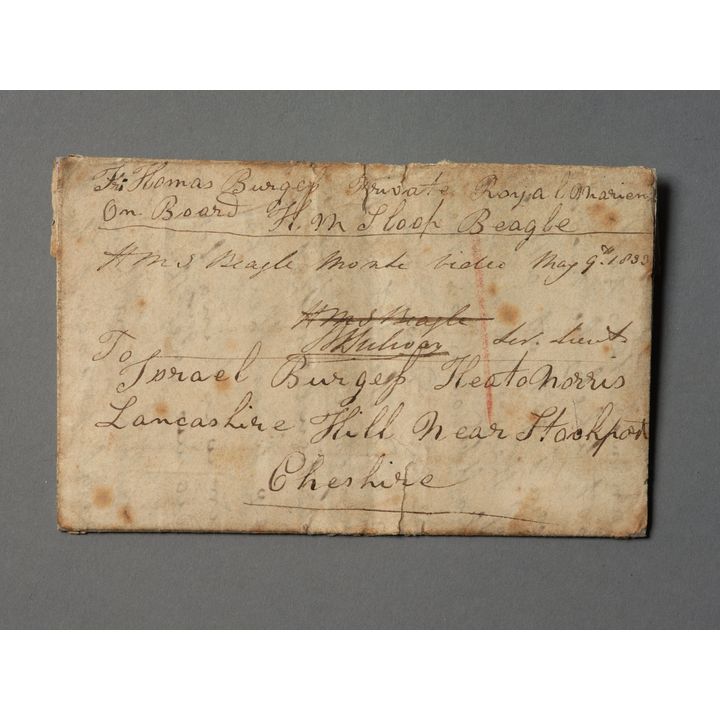 Fr: Thomas Burgess Private Royal Marien
On Board H.M Sloop Beagle
H M S Beagle Monte Video May 9th 1833
H M S Beagle
B J Sulivan Sen. Lieut
To
Israel Burgess Heato Norris
Lancashire Hill Near Stockport
Cheshire